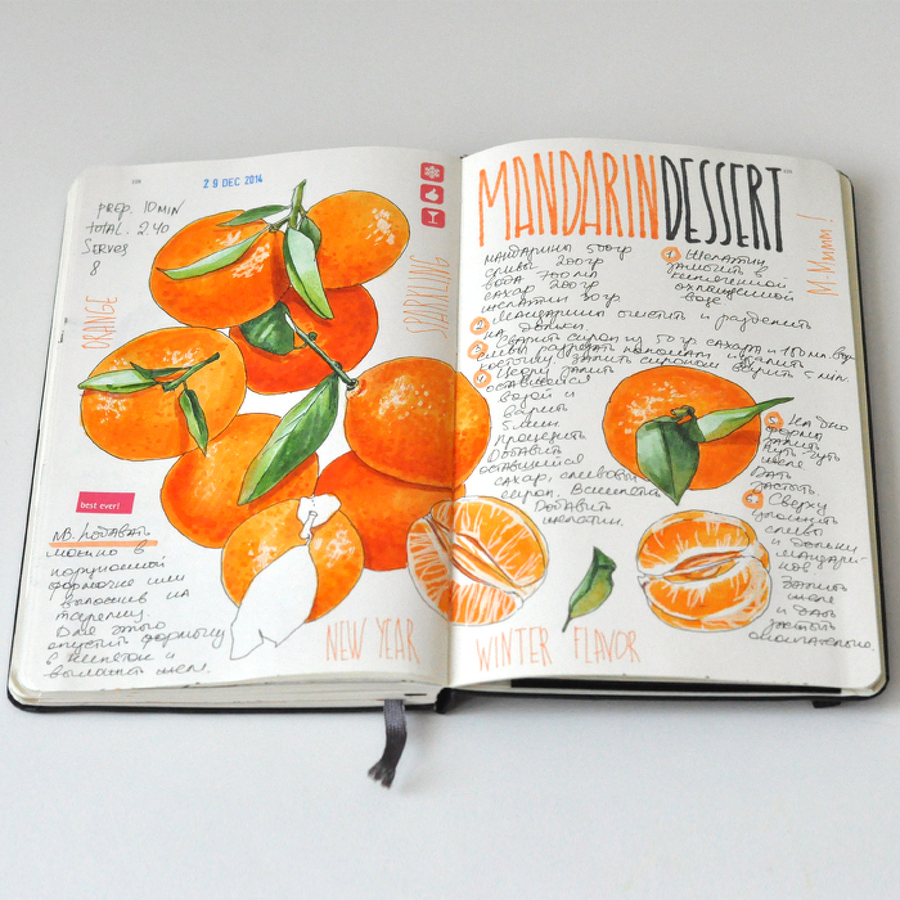 29 DEC 2014
PREP. 10 MIN
TOTAL. 2.40
SERVES
8
ORANGE
SPARKLING
best ever!
NB. Подавать
можно в
порционной
формочке или
выложив на
тарелку.
Для этого
опустить формочку
в кипяток и
выложить желе.
NEW YEAR
MANDARIN DESSERT
М-Мммм!
мандарины 500гр
сливы 200гр
вода 700мл
сахар 200гр
желатин 30гр
1. Желатин
замочить в
кипяченной
охлажденной
воде
2 Мандарины очистить и разделить
на дольки.
3 Сварить сироп из 50 гр сахара и 100 мл. воды
сливы разрезать пополам удалить
косточку залить сиропом варить 5 min.
4 Цедру залить
оставшейся
водой и
варить
5 мин.
Процедить
Добавить
оставшийся
сахар, сливовый
сироп. Вскипятить
Добавить
желатин.
5. На дно
формы
налить
чуть-чуть
желе
Дать
застыть.
Сверху
уложить
сливы
и дольки
мандари-
нов
Залить
желе
и дать
застыть
окончательно.
WINTER FLAVOR